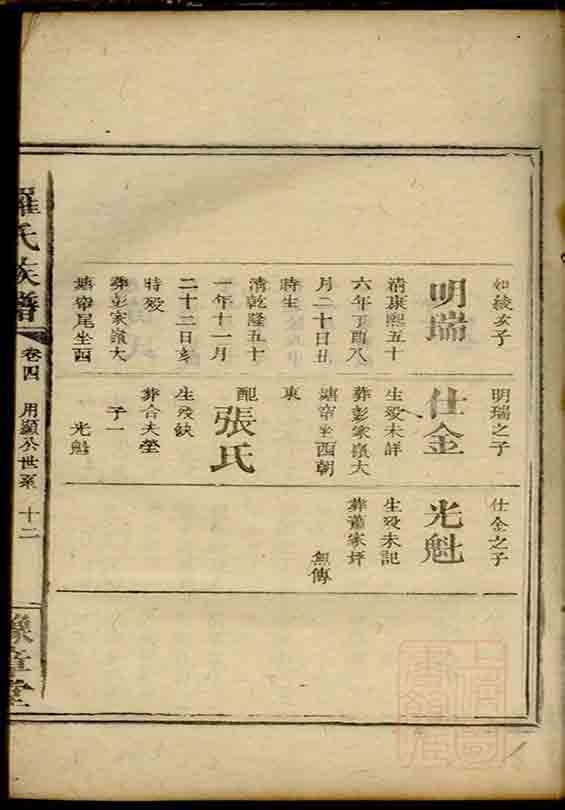 如綾次子
明瑞
清康熙五十
六年丁酉八
月二十日丑
時生
清乾隆五十
一年十一月
二十三日亥
時殁
葬彭家嶺大
塘窩尾坐酉
明瑞之子
仕金
生殁未詳
葬彭家嶺大
塘窩坐酉朝
東
配
張氏
生殁缺
葬合夫塋
子一
光魁
仕金之子
光魁
生殁未記
葬蕭家坪
無傳
羅氏族譜
卷四
用顯公世系
十二
豫章堂